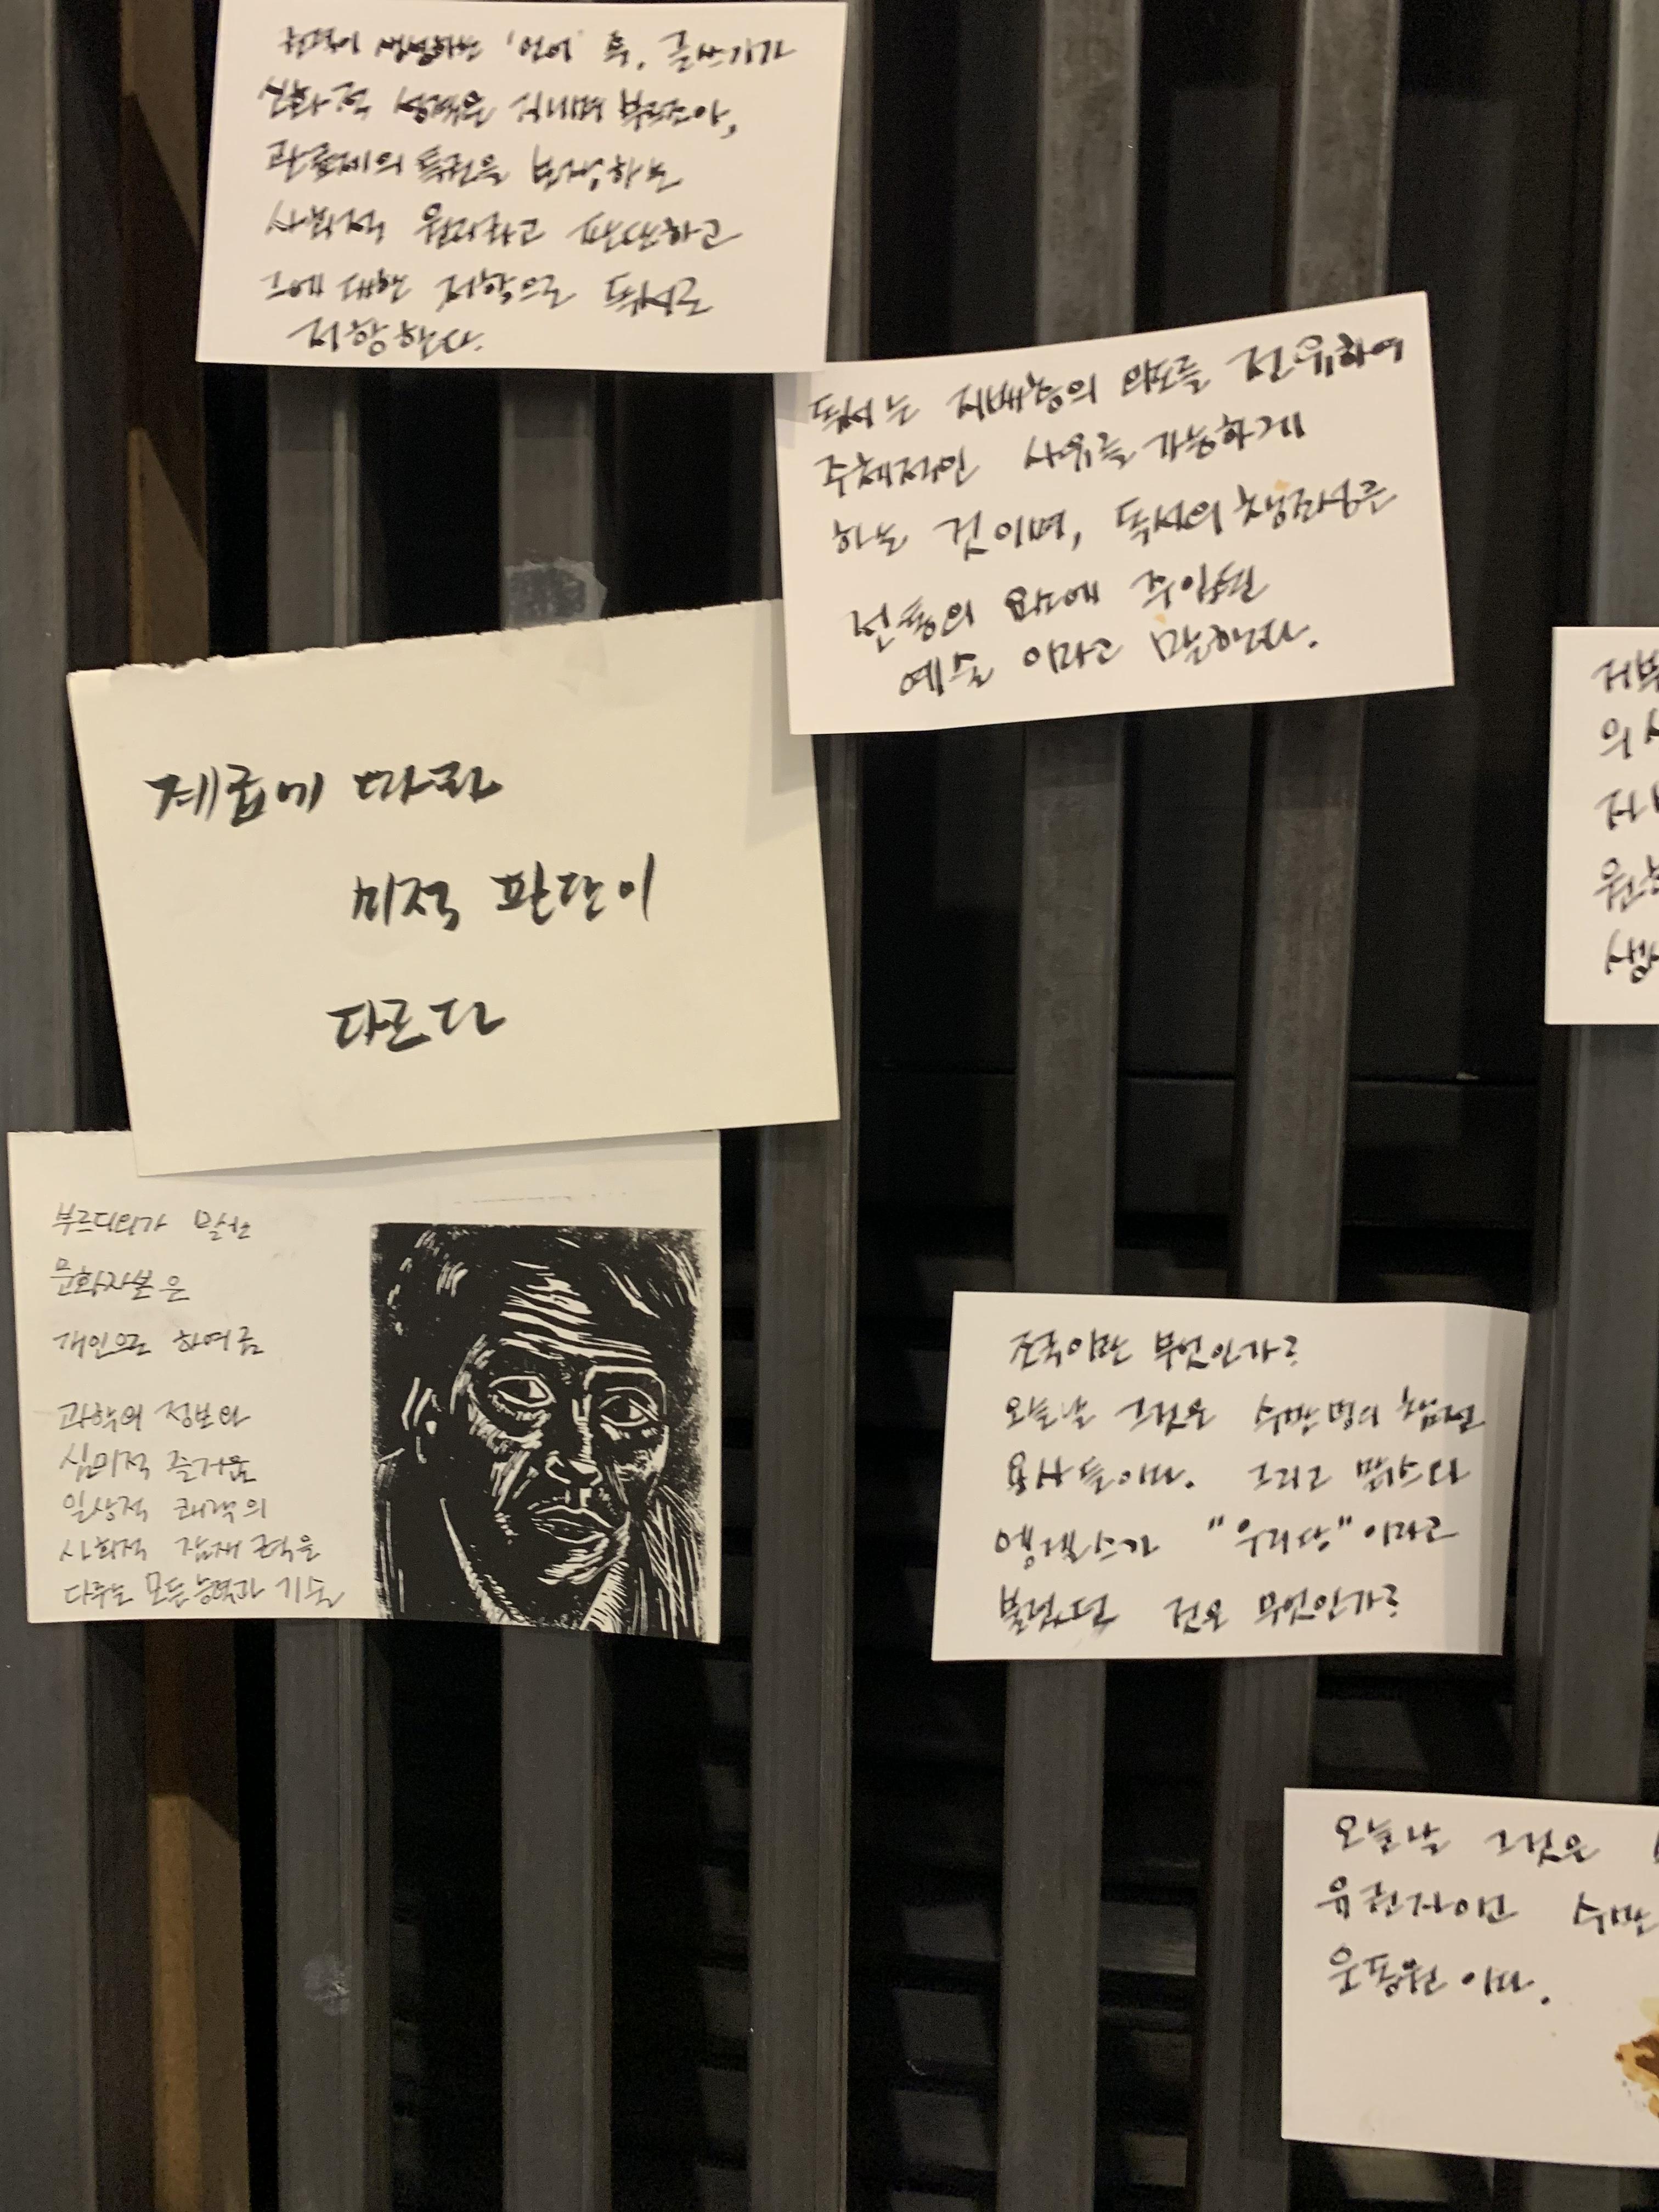 생성하는 '언어' 후, 글쓰기가
신화적 성격을 지니며 부르조아,
관료제의 특권을 반영하는
사회적 원리라고 판단하고
그에 대한 저항으로 독서로
저항한다.
독서는 지배층의 의도를 전위하여
주체적인 사유를 가능하게
하는 것이며, 독서의 창조성은
전통의 와도에 주입된
예술 이라고 말한다.
계급에 따라
미적 판단이
다르다
부르디외가 말한
문화자본은
개인으로 하여금
과학의 정보와
심미적 즐거움
일상적 쾌락의
사회적 잠재 력을
다루는 모든 능력과 기술
조국이란 무엇인가?
오늘날 그것은 수만명의 참전
용사들이다. 그리고 맑스다
엥겔스가 "우리당"이라고
불렀던 것은 무엇인가?
거부
의
원
생
오늘날 그것은
유권자이고 수만
운동원 이다.